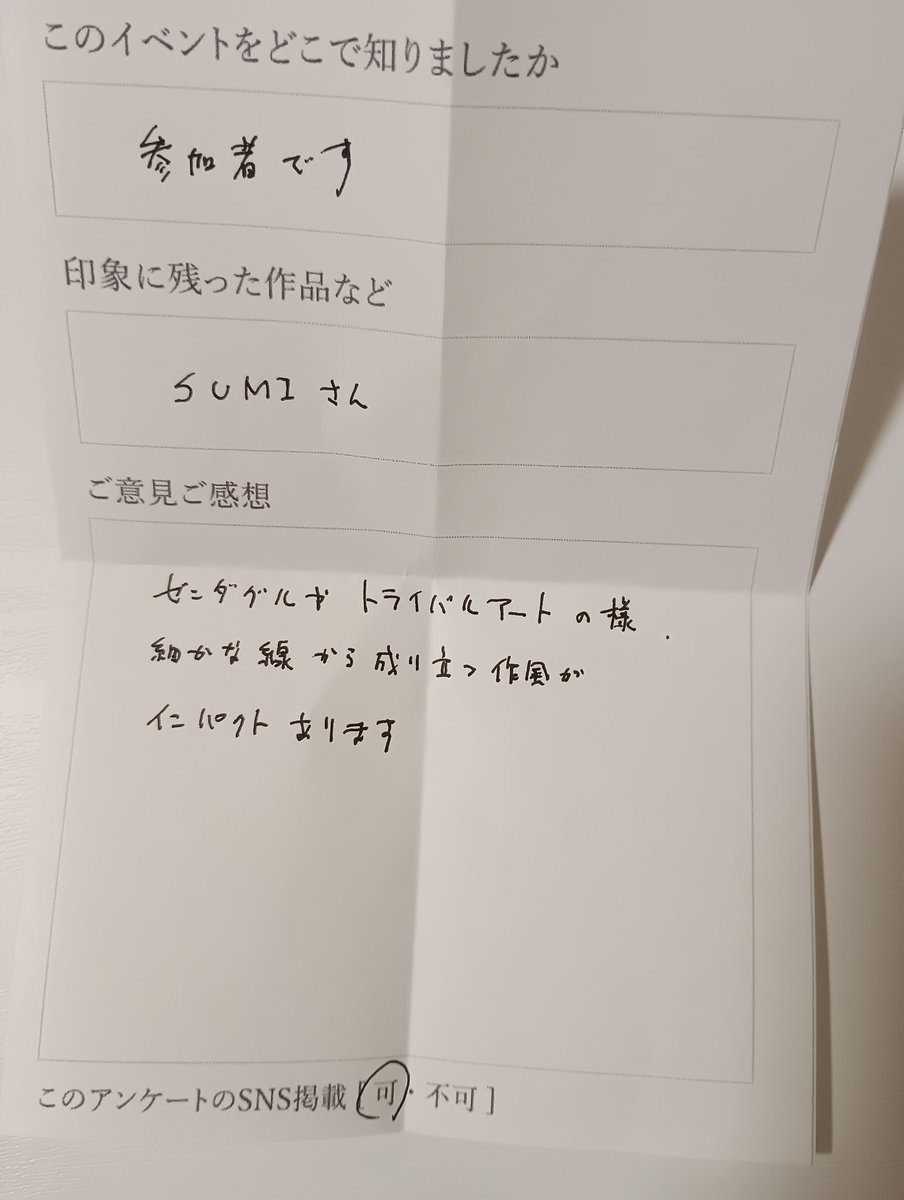 このイベントをどこで知りましたか
参加者です
印象に残った作品など
SUMIさん
ご意見ご感想
ゼンダグルや トライバルアートの様.
細かな線から成り立つ作風が
インパクトあります
このアンケートのSNS掲載 [ 可・不可 ]